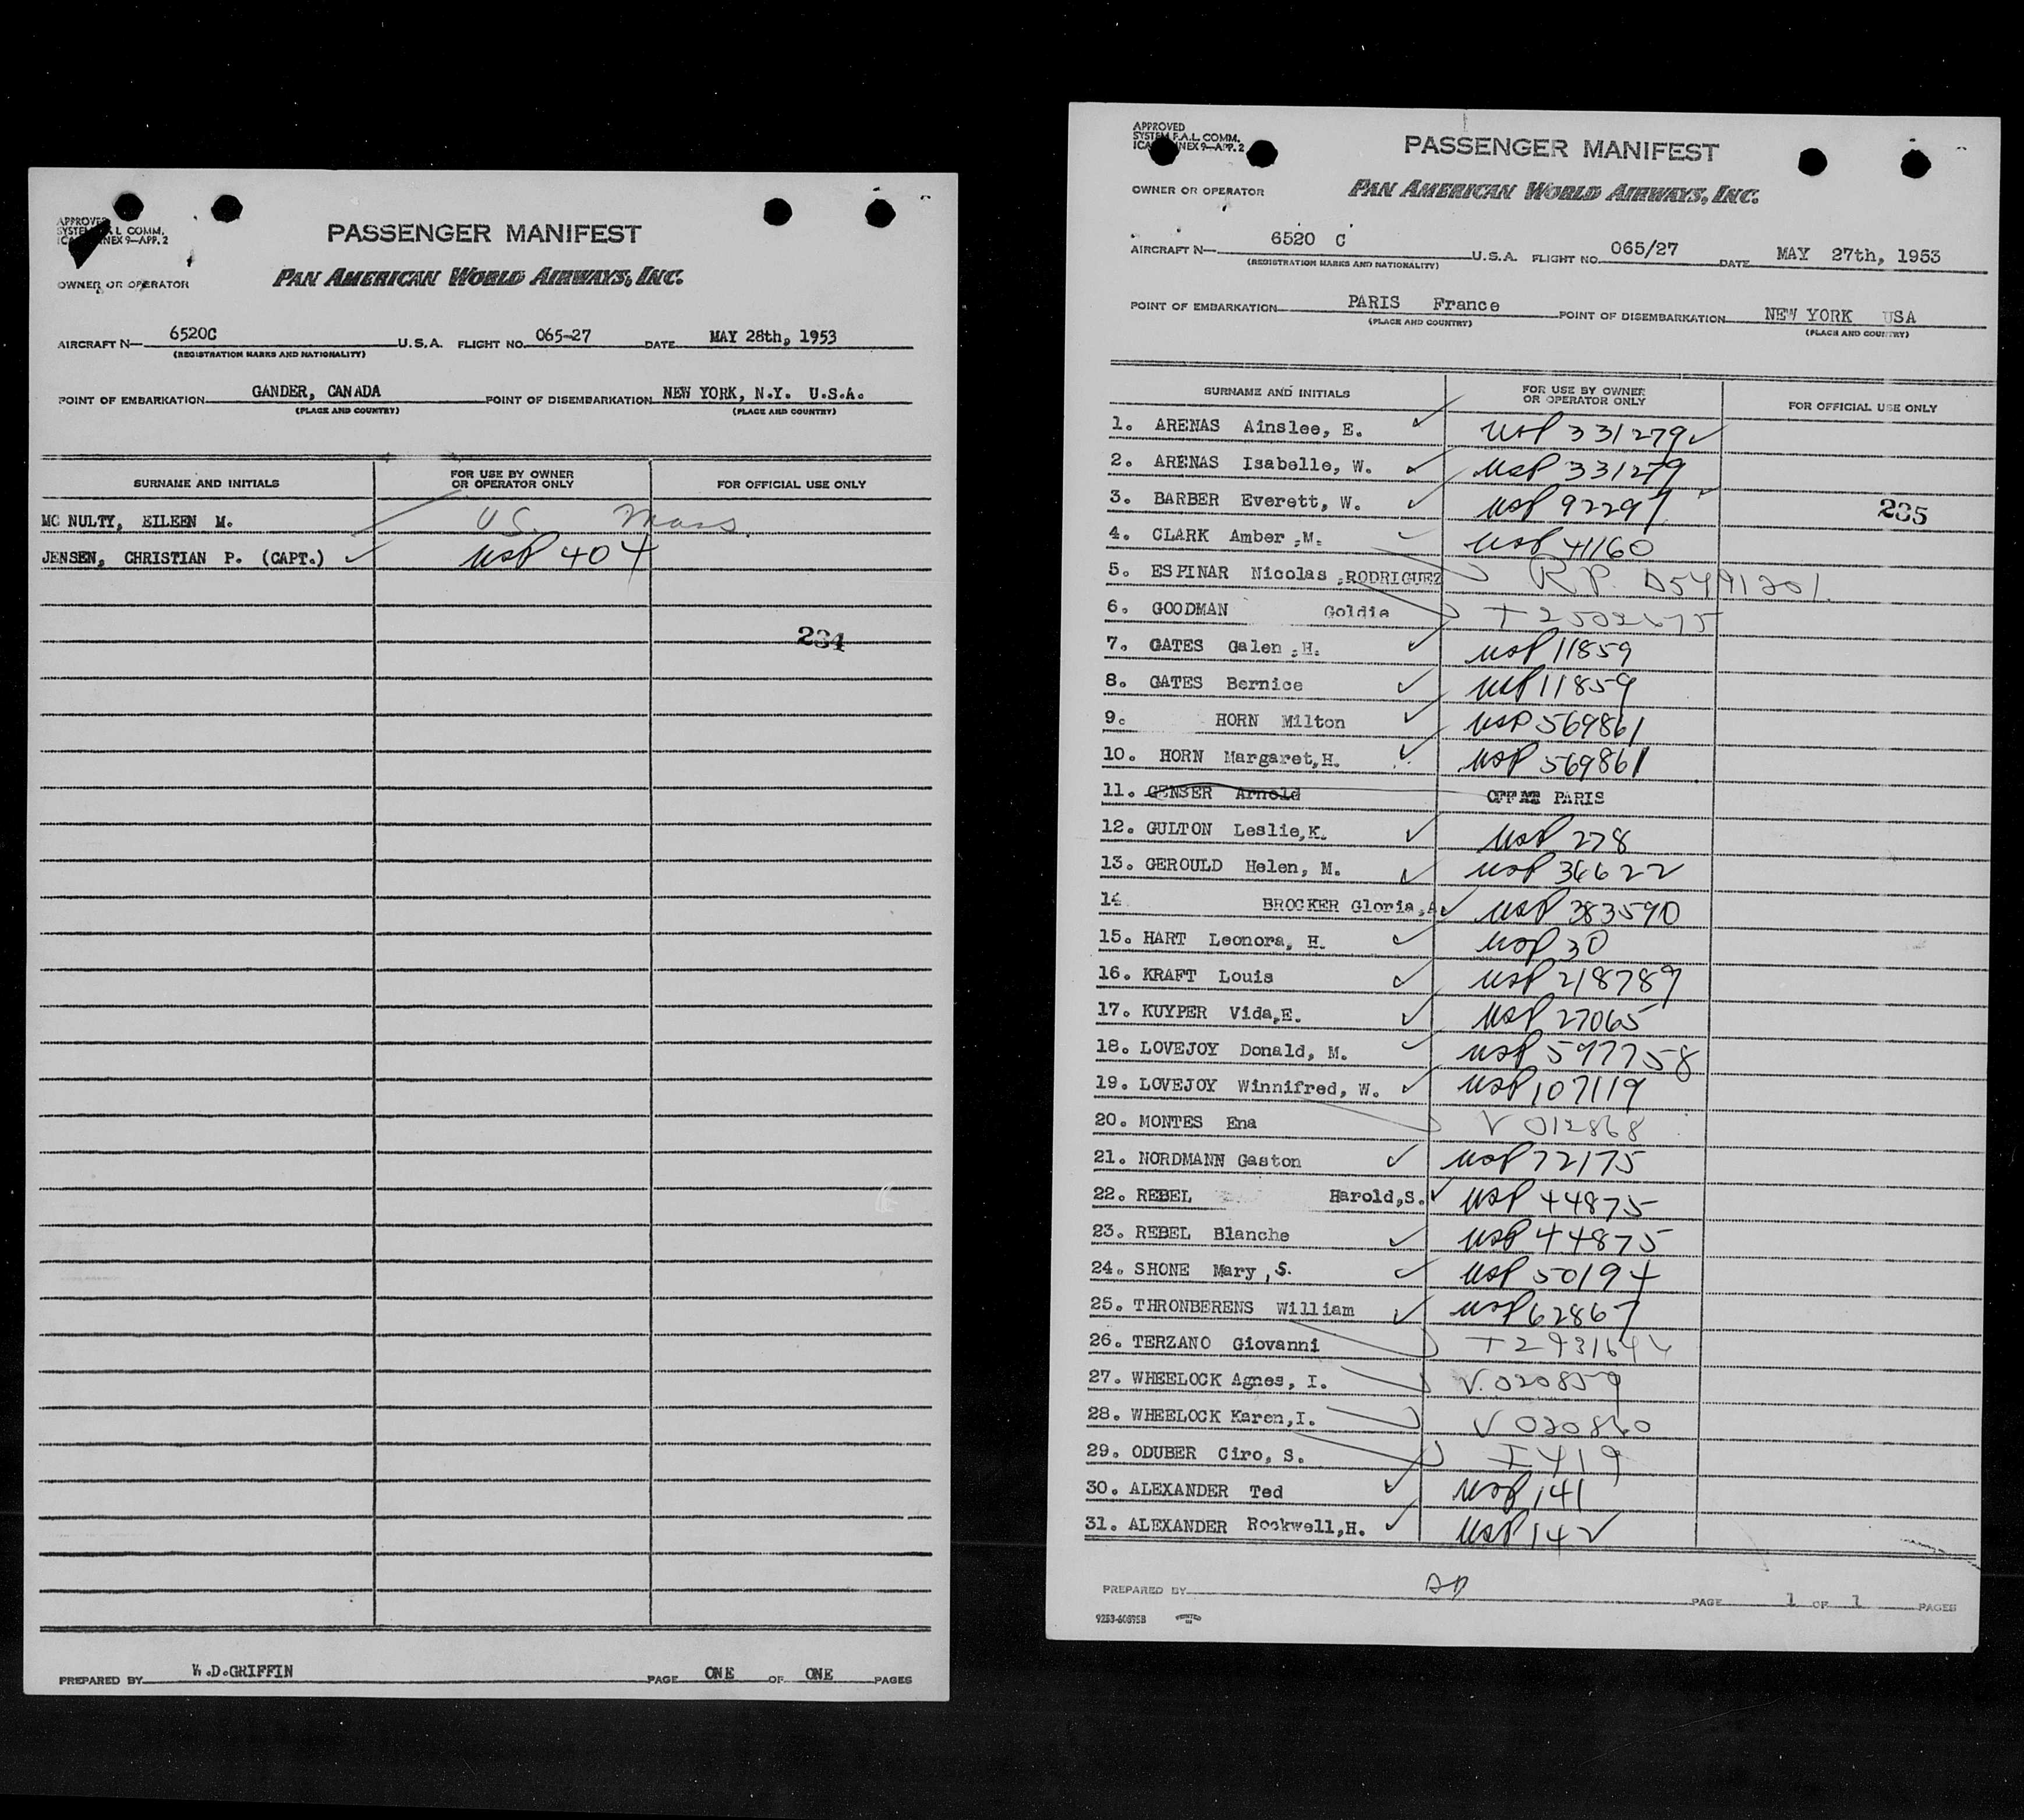 APPROVED
SYSTEM F.A.L. COMM.
ICAO ANNEX 9—APP. 2
PASSENGER MANIFEST
OWNER OR OPERATOR
PAN AMERICAN WORLD AIRWAYS, INC.
AIRCRAFT N— 6520C U.S.A. FLIGHT NO. 065-27 DATE MAY 28th, 1953
(REGISTRATION MARKS AND NATIONALITY)
POINT OF EMBARKATION GANDER, CANADA POINT OF DISEMBARKATION NEW YORK, N.Y. U.S.A.
(PLACE AND COUNTRY) (PLACE AND COUNTRY)
SURNAME AND INITIALS FOR USE BY OWNER OR OPERATOR ONLY FOR OFFICIAL USE ONLY
MC NULTY, EILEEN M. U.S. Mass
JENSEN, CHRISTIAN P. (CAPT.) ✓ USP 404
234
PREPARED BY W.D.GRIFFIN PAGE ONE OF ONE PAGES
APPROVED
SYSTEM F.A.L. COMM.
ICAO ANNEX 9—APP. 2
PASSENGER MANIFEST
OWNER OR OPERATOR
PAN AMERICAN WORLD AIRWAYS, INC.
AIRCRAFT N— 6520 C U.S.A. FLIGHT NO. 065/27 DATE MAY 27th, 1953
(REGISTRATION MARKS AND NATIONALITY)
POINT OF EMBARKATION PARIS France POINT OF DISEMBARKATION NEW YORK USA
(PLACE AND COUNTRY) (PLACE AND COUNTRY)
SURNAME AND INITIALS FOR USE BY OWNER OR OPERATOR ONLY FOR OFFICIAL USE ONLY
1. ARENAS Ainslee, E. ✓ USP 331279 ✓
2. ARENAS Isabelle, W. ✓ USP 331279
3. BARBER Everett, W. ✓ USP 92297 235
4. CLARK Amber ,M. ✓ USP 41160
5. ESPINAR Nicolas ,RODRIGUEZ R.P. D5491201
6. GOODMAN Goldie T 2502675
7. GATES Galen ,H. ✓ USP 11859
8. GATES Bernice ✓ USP 11859
9. HORN Milton ✓ USP 569861
10. HORN Margaret,H. ✓ USP 569861
11. GENSER Arnold OFF AT PARIS
12. GULTON Leslie,K. ✓ USP 278
13. GEROULD Helen, M. ✓ USP 36622
14 BROCKER Gloria,A ✓ USP 383590
15. HART Leonora, H. ✓ USP 30
16. KRAFT Louis ✓ USP 218789
17. KUYPER Vida,E. ✓ USP 27065
18. LOVEJOY Donald, M. ✓ USP 597758
19. LOVEJOY Winnifred, W. ✓ USP 107119
20. MONTES Ena V 012868
21. NORDMANN Gaston ✓ USP 72175
22. REBEL Harold,S. ✓ USP 44875
23. REBEL Blanche ✓ USP 44875
24. SHONE Mary ,S. ✓ USP 50194
25. THRONBERENS William ✓ USP 62867
26. TERZANO Giovanni
27. WHEELOCK Agnes, I. V.020859
28. WHEELOCK Karen,I. V 020860
29. ODUBER Ciro, S. I 419
30. ALEXANDER Ted ✓ USP 141
31. ALEXANDER Rockwell,H. ✓ USP 142
PREPARED BY PAGE 1 OF 1 PAGES